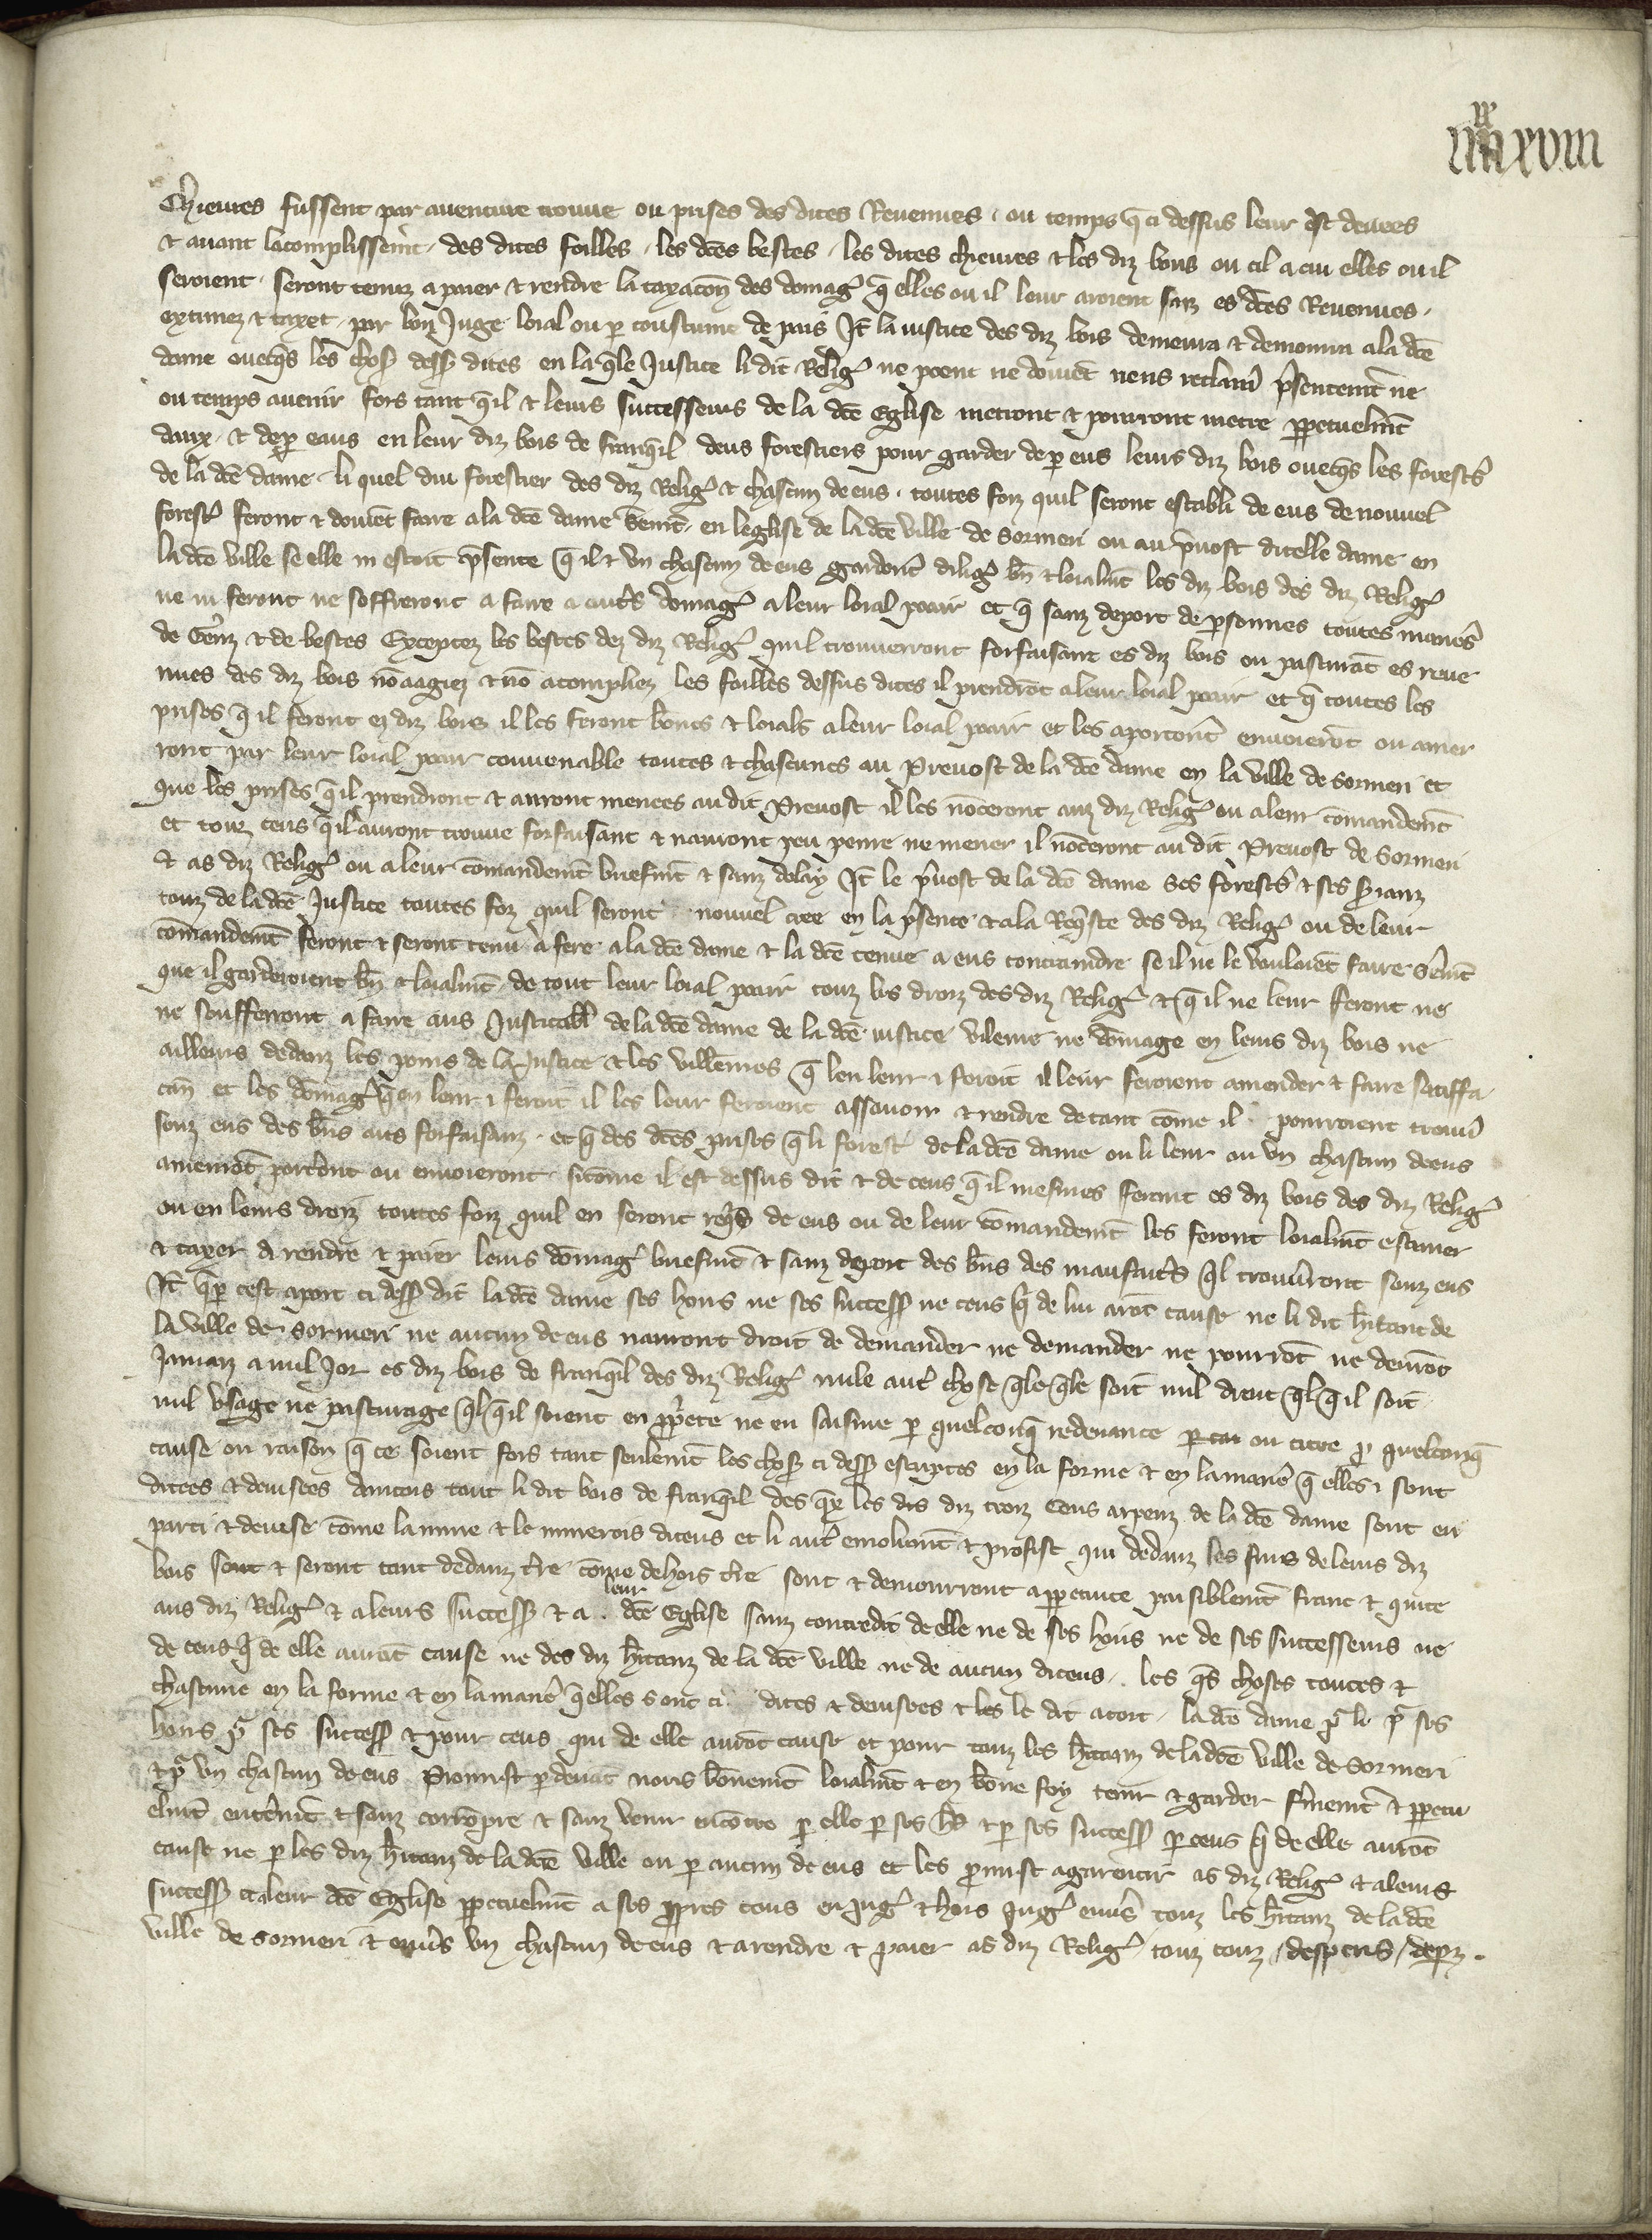 iiiixx xviii
Chieures fussent par auenture trouue ou prises des dites Reuenues . ou temps q̄ ci dessus leur est deuees
⁊ auant lacomplissem̄t . des dites foilles . les dc̄es bestes . les dites chieures ⁊ les diz bons ou cil a cui elles ou il
seroient . seront tenuz a paier ⁊ rendre la taxacōn des domag̕ q̄ elles ou il leur aroient faiz es dc̄es Reuenues .
extimez ⁊ taxet . par bon Juge loial ou p̱ coustume de pais It̄ la iustice des diz bois demeura ⁊ demourra a la dc̄e
dame ouecq̄s les choses dess̄ dites en la q̄le Justice li dit Relig̕ ne poent ne doiuēt riens reclam̄ p̄sentem̄t ne
ou temps auenir fors tant q̄ il ⁊ leurs successeurs de la dc̄e Eglise metront ⁊ pourront metre ꝑpetuelm̄t
daux . ⁊ de p̱ eaus en leur diz bois de franq̄il deus forestiers pour garder de p̱ eus leurs diz bois ouecq̄s les forest̄s
de la dc̄e dame . li quel dui forestier des diz Relig̕ ⁊ chascun de eus . toutes foiz quil seront establi de eus de nouuel
forest̕ feront ⁊ doiuēt faire a la dc̄e dame sem̄t . en leglise de la dc̄e ville de Sormeri ou au p̄uost dicelle dame en
la dc̄e ville se elle ni estoit p̄sente q̄ il ⁊ vn chascun de eus garderōt dilig̕ bn̄ ⁊ loialm̄t les diz bois des diz Relig̕
ne ni feront ne soffreront a faire a aut̄s domag̕ a leur loial pooir et q̄ sanz deport de p̱sonnes toutes manē̄s
de Genz ⁊ de bestes Exceptez les bestes dez diz Relig̕ quil trouuerront forfaisant es diz bois ou pasturāt es reue
nues des diz bois nō aagiez ⁊ nō acompliez les foilles dessus dites il prendrōt a leur loial pooir et q̄ toutes les
prises q̄ il feront ez diz boiz il les feront bones ⁊ loials a leur loial pooir et les aporterōt enuoierōt ou amer
ront par leur loial pooir conuenable toutes ⁊ chascunes au Preuost de la dc̄e dame en la ville de Sormeri et
que les prises q̄ il prendront ⁊ auront menees au dit Preuost il les nōceront aux diz Relig̕ ou a leur cōmandem̄t
et touz ceus q̄ il auront trouue forfaisant ⁊ nauront peu penre ne mener il nōceront au dit Preuost de Sormeri
⁊ as diz Relig̕ ou a leur cōmandem̄t briefm̄t ⁊ sanz delay It̄ le p̄uost de la dc̄e dame ses forest̄s ⁊ ses s̄ianz
touz de la dc̄e Justice toutes foz quil seront nouuel cree en la p̄sence ⁊ a la Req̄ste des diz Relig̕ ou de leur
cōmandem̄t feront ⁊ seront tenu a fere a la dc̄e dame ⁊ la dc̄e tenue a eus contraindre se il ne le vouloiēt faire s̄em̄t
que il garderoient bn̄ ⁊ loialm̄t . de tout leur loial pooir touz les droiz des diz Relig̕ ⁊ q̄ il ne leur feront ne
ne soufferront a faire aus Justicabl̄ de la dc̄e dame de la dc̄e iustice vilenie ne dōmage en leurs diz bois ne
ailleurs dedanz les poins de la Justice ⁊ les villenies q̄ len leur i feroit il leur feroient amender ⁊ faire satiffa
cōn et les dōmag̕ q̄ en leur i feroit il les leur feroient assauoir ⁊ rendre de tant cōme il . pourroient trouū
souz eus des bn̄s aus forfaisanz . et q̄ des dc̄es prises q̄ li forest̕ de la dc̄e dame ou li leur ou vn chascun de eus
amenrōt porterōt ou enuoieront . sicōme il est dessus dit ⁊ de ceus q̄ il mesmes feront es diz bois des diz Relig̕
ou en leurs droiz toutes foiz quil en seront req̄s de eus ou de leur cōmandem̄t les feront loialm̄t estimer
⁊ taxer a rendre ⁊ paier leurs dōmag̕ briefm̄t ⁊ sanz deport des bn̄s des maufait̄s q̄l trouūront souz eus
It̄ q̄ p̱ cest aport ci dess̄ dit la dc̄e dame ses hoirs ne ses success̄ ne ceus q̄ de lui arōt cause ne li dit h̄itant de
la ville de Sormeri ne aucun de eus nauront droit de demander ne demander ne pourrōt ne deurōt
Jamaiz a nul Jor es diz bois de franq̄il des diz Relig̕ nule aut̄ chose q̄le q̄le soit nul droit q̄l q̄ il soit
nul vsage ne pasturage q̄l q̄ il soient en ꝓp̄ete ne en saisine p̱ quelconq̄ redeuance p̱ ou titre p̱ quelconq̄
cause ou raison q̄ ce soient fors tant seulem̄t les choses ci dess̄ escriptes en la forme ⁊ en la manē̄ q̄ elles i sont
dictes ⁊ deuisees Aincois tout li dit bois de franq̄il des q̄x les dis diz troiz Cens arpenz de la dc̄e dame sont en
parti ⁊ deuise cōme la mine ⁊ le minerois diceus et li aut̄ emolum̄t ⁊ profist qui dedanz les fins de leurs diz
bois sont ⁊ seront tant dedanz t̄re cōme dehors t̄re sont ⁊ demourront a ꝑpetuite paisiblem̄t franc ⁊ quite
aus diz Relig̕ ⁊ a leurs success̄ ⁊ a . leur dc̄e Eglise sanz contredit de elle ne de ses hoirs ne de ses successeurs ne
de ceus q̄ de elle aurōt cause ne des diz h̄itanz de la dc̄e ville ne de aucun diceus . les q̄s choses toutes ⁊
chascune en la forme ⁊ en la manē̄ q̄ elles sont ci dites ⁊ deuisees ⁊ les le dit acort . la dc̄e dame p̱ᵃ li p̱ᵃ ses
hoirs p̱ᵃ ses success̄ ⁊ pour ceus qui de elle aurōt cause et pour touz les h̄itanz de la dc̄e ville de Sormeri
⁊ p̱ᵃ vn chascun de eus Promist p̱ deuāt nous bōnem̄t loialm̄t ⁊ en bōne foy tenir ⁊ garder f̄mem̄t ⁊ ꝑpetu
elm̄t entērm̄t ⁊ sanz corrōpre ⁊ sanz venir encōtre p̱ elle p̱ ses hō ⁊ p̱ ses success̄ p̱ ceus q̄ de elle aurōt
cause ne p̱ les diz h̄itanz de la dc̄e ville ou p̱ aucun de eus et les p̱mist a garentir as diz Relig̕ ⁊ a leurs
success̄ et a leur dc̄e Eglise ꝑpetuelm̄t a ses ꝓpres cous en Jug̕ ⁊ hors Jug̕ enuēs touz les h̄itanz de la dc̄e
ville de Sormeri ⁊ enuēs vn chascun de eus ⁊ a rendre ⁊ paier as diz Relig̕ touz couz / despens / dep̱z .